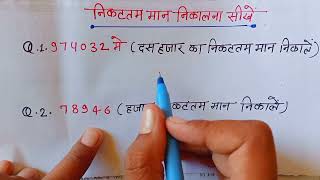 निकटतम मान निकालना सीखें
Q.1. 974032 मे (दस हजार का निकटतम मान निकालें)
Q.2. 78946 (हजा निकटतम मान निकालें)